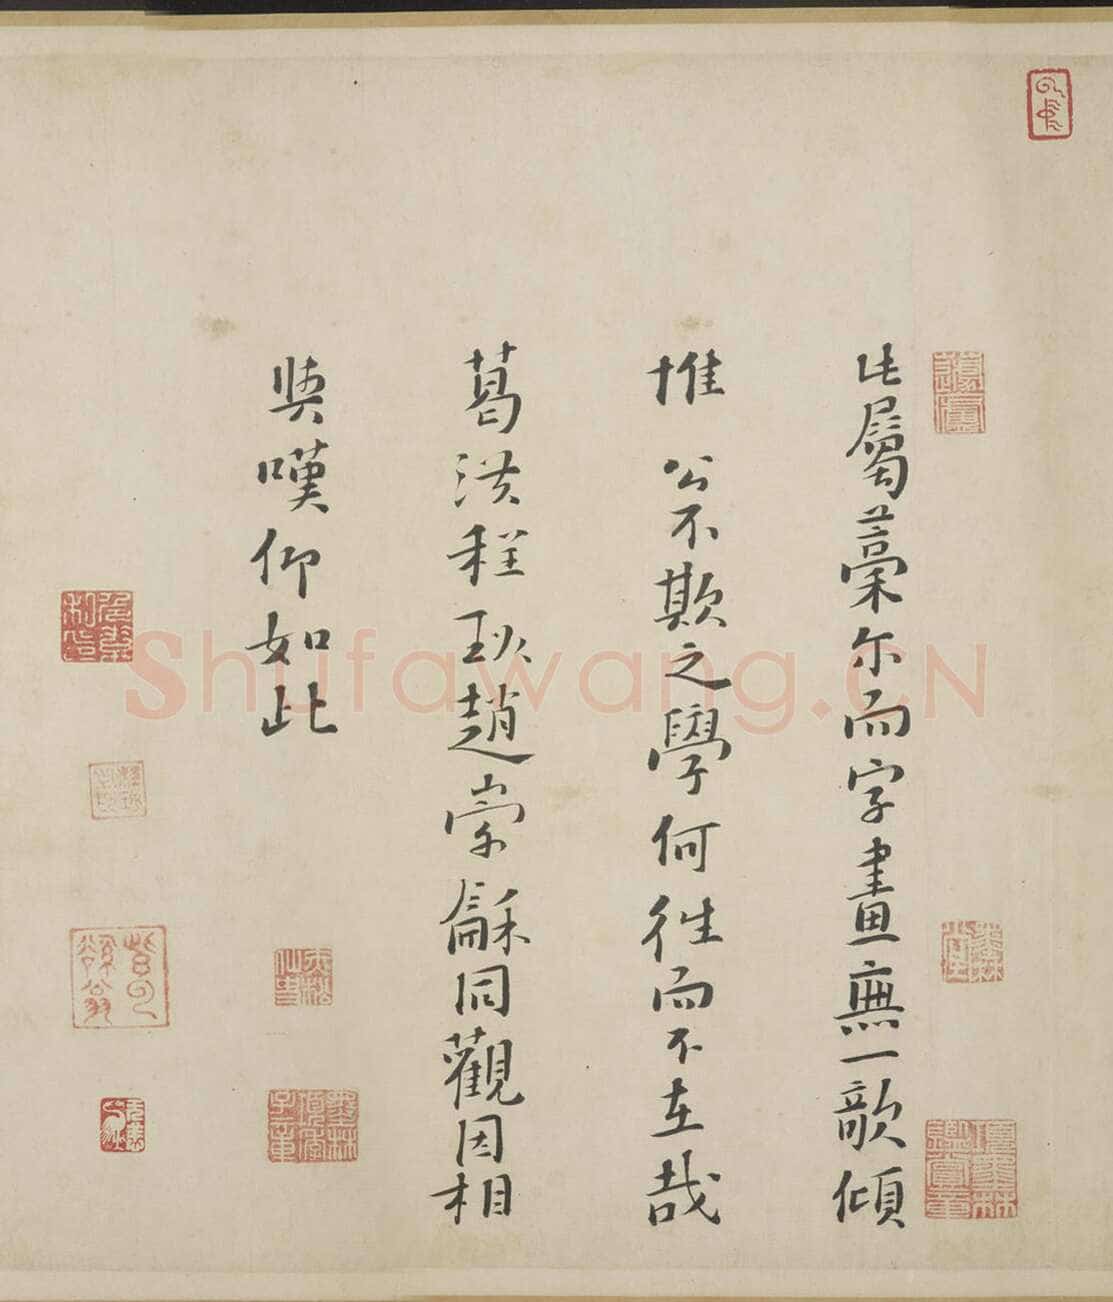 此屬藁尔而字畫無一欹傾
惟 公不欺之學何往而不在哉
葛洪程珌趙崇龢同觀因相
與嘆仰如此
Shufawang.CN